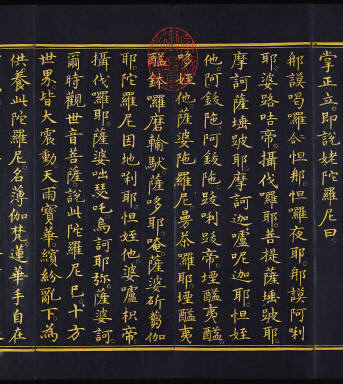 掌正立。即說姥陀羅尼曰。
那謨喝囉怛那怛囉夜耶那謨阿唎
耶婆路咭帝。攝伐囉耶菩提薩埵跛耶。
摩訶薩埵跛耶摩訶迦嚧呢迦耶怛姪
他阿鈸陁阿鈸陁跋唎跋帝堙醯夷醯
哆姪他薩婆陁羅尼曼荼囉耶堙醯夷
醯 囉磨輸馱薩哆耶唵薩婆斫芻伽
耶陀羅尼因地唎耶怛姪他婆嚧枳帝
攝伐囉耶薩婆咄瑟吒烏訶耶弥薩婆訶
爾時觀世音菩薩。說此陀羅尼已十方
世界皆大震動天雨寶華繽紛亂下為
供養此陀羅尼名薄伽梵蓮華手自在